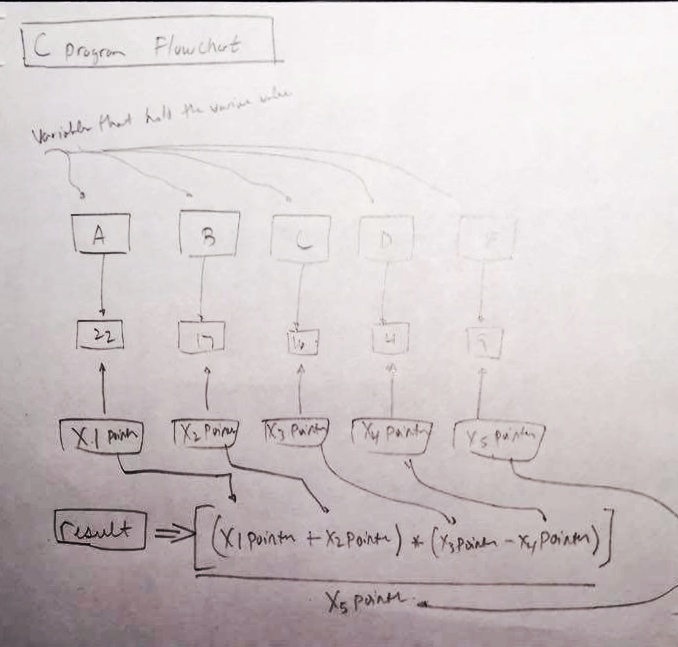 C program Flowchart
Variables that hold the various value
A B C D E
22 17 16 4 9
X1 pointer X2 pointer X3 pointer X4 pointer X5 pointer
result ⇒ [(X1 pointer + X2 pointer) * (X3 pointer - X4 pointer)]
X5 pointer